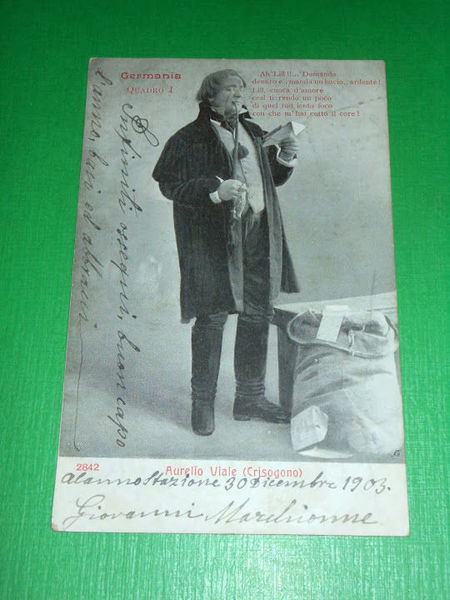 Germania
QUADRO I
Ah! Lill!!... Domanda
decoro e, manda un bacio, ardente!
Lill, cuoca d'amore
così ti rendo un poco
di quel tuo foco
con che m'hai cotto il core!
Infiniti ossequi, buon capo
d'anno, baci ed abbracci
2842
Aurelio Viale (Crisogono)
Alanno Stazione 30 Dicembre 1903.
Giovanni Marchionne